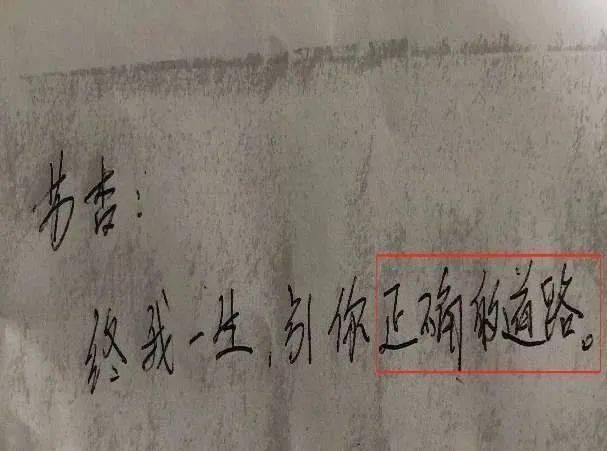 芳杏:
终我一生,引你正确的道路。